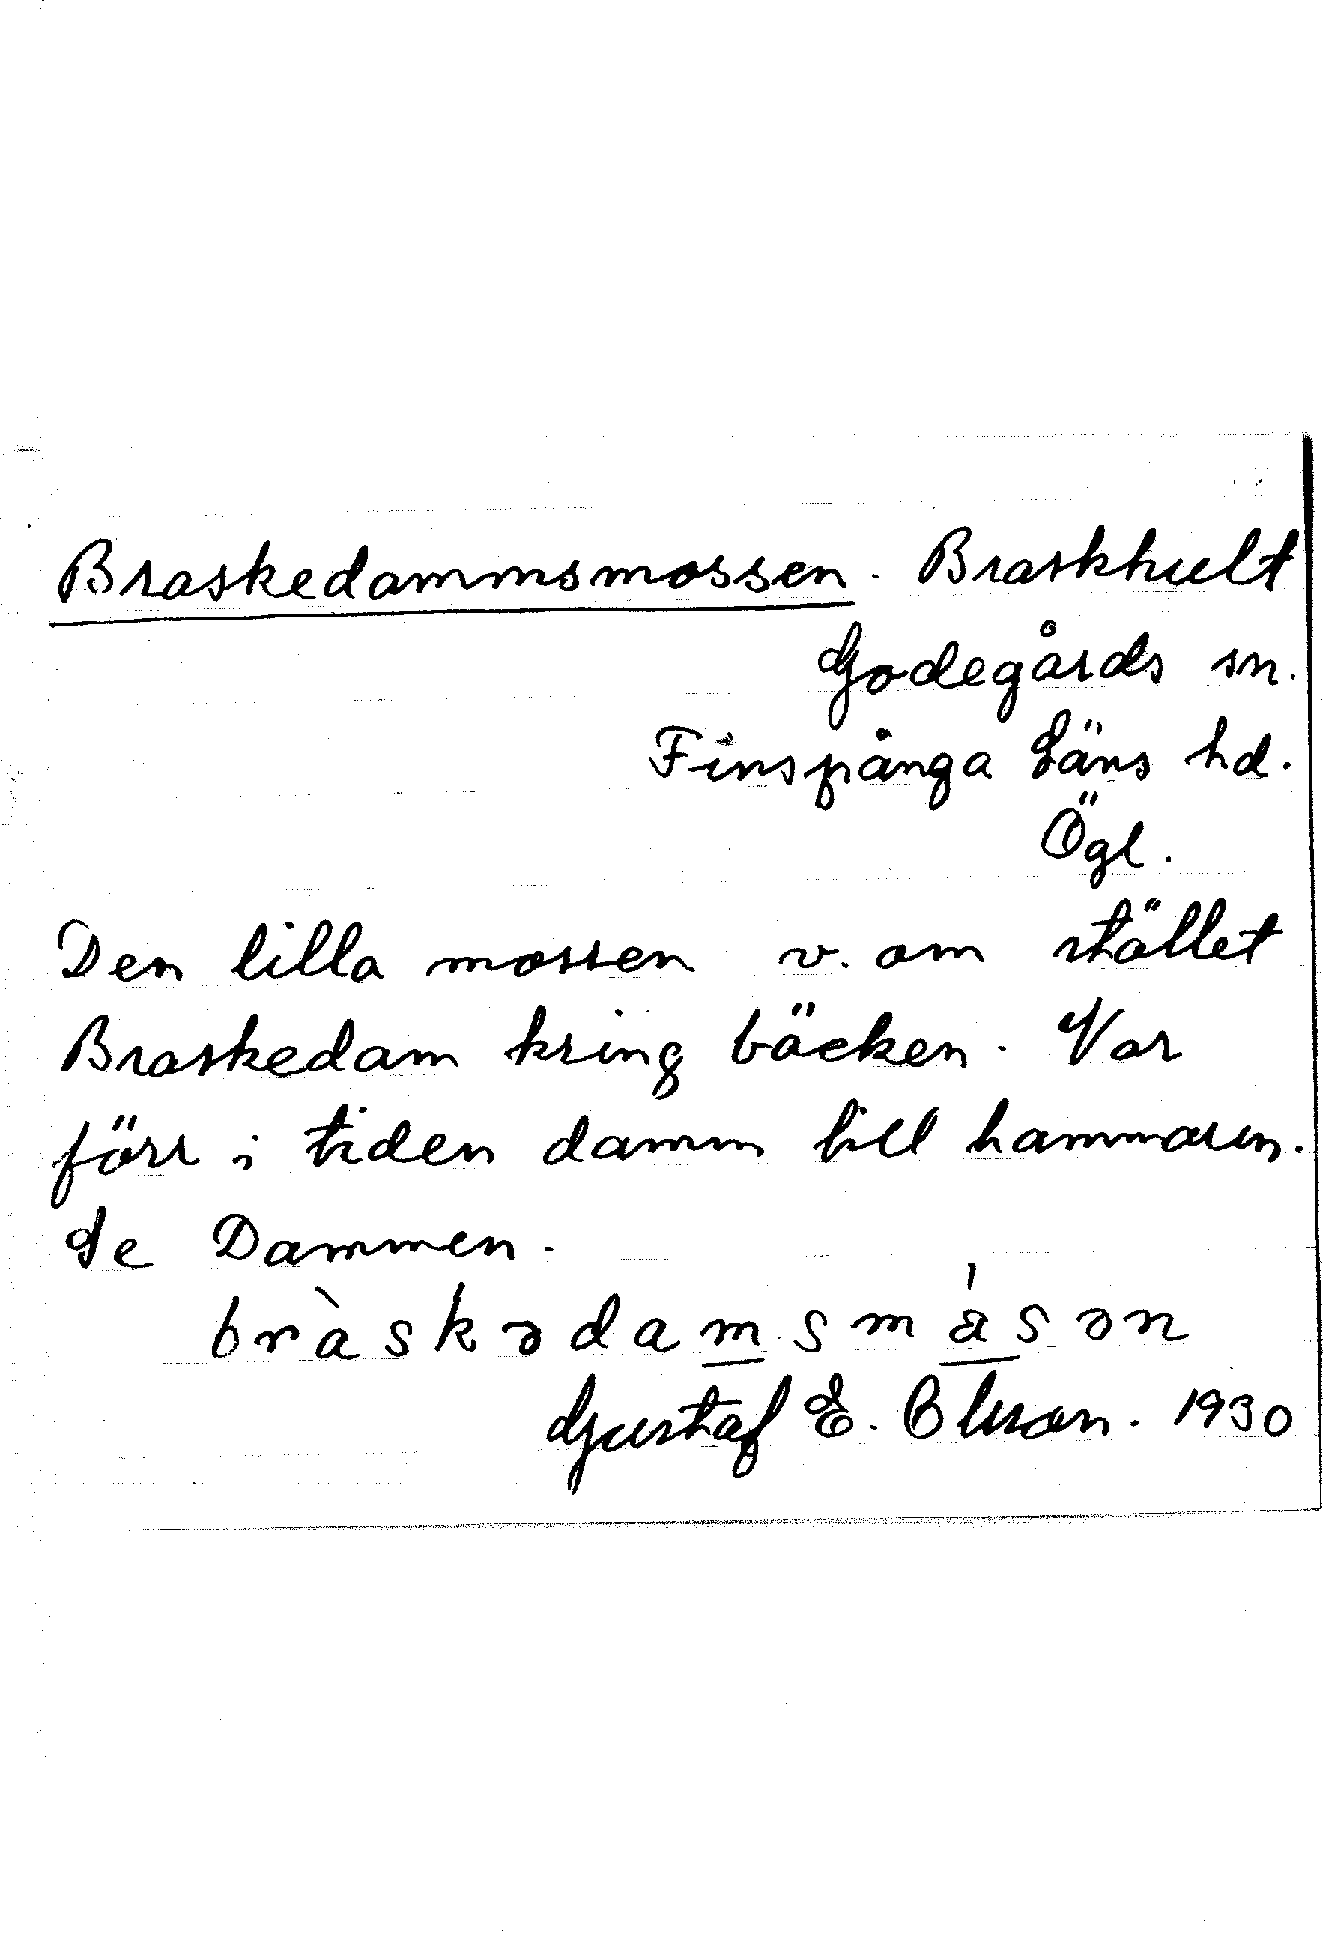 Braskedammsmossen. Braskhult
Godegårds sn.
Finspånga Läns hd.
Ögl.
Den lilla mossen v. om stället
Braskedam kring bäcken. Var
förr i tiden damm till hammaren.
Se Dammen.
bràskədam̲smǻ̲sən
Gustaf E. Olsson. 1930